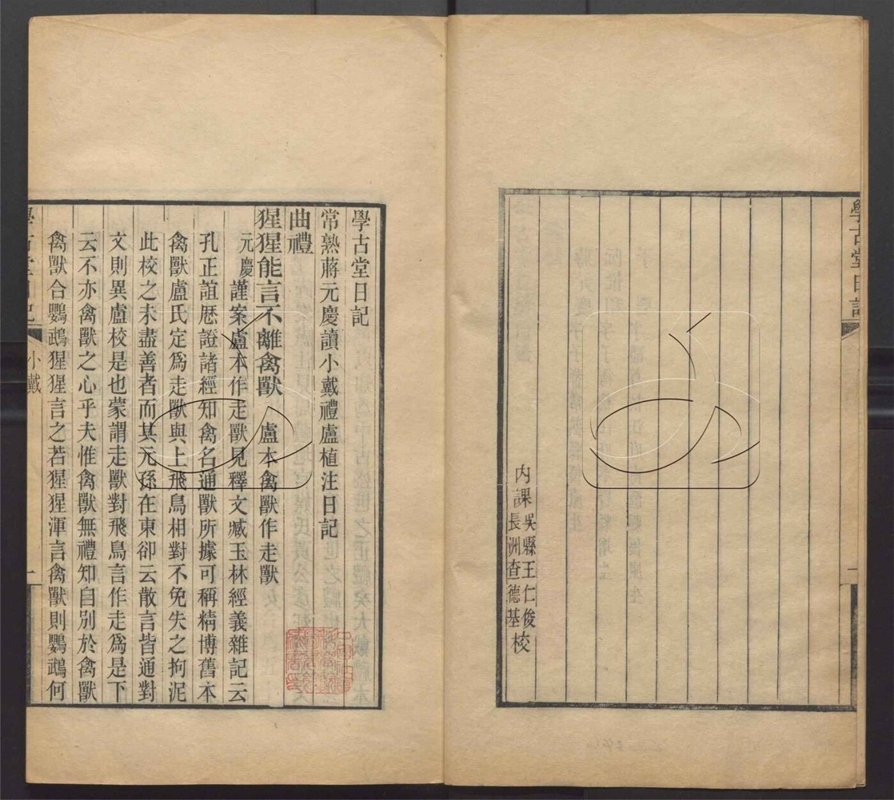 學古堂日記
內課吳縣王仁俊
長洲查德基校
學古堂日記
常熟蔣元慶讀小戴禮盧植注日記
曲禮
猩猩能言不離禽獸 盧本禽獸作走獸
元慶謹案盧本作走獸見釋文臧玉林經義雜記云
孔正誼厯證諸經知禽名通獸所據可稱精博舊本
禽獸盧氏定爲走獸與上飛鳥相對不免失之拘泥
此校之未盡善者而其元孫在東卻云散言皆通對
文則異盧校是也蒙謂走獸對飛鳥言作走爲是下
云不亦禽獸之心乎夫惟禽獸無禮知自別於禽獸
禽獸合鸚鵡猩猩言之若猩猩渾言禽獸則鸚鵡何
小戴
一